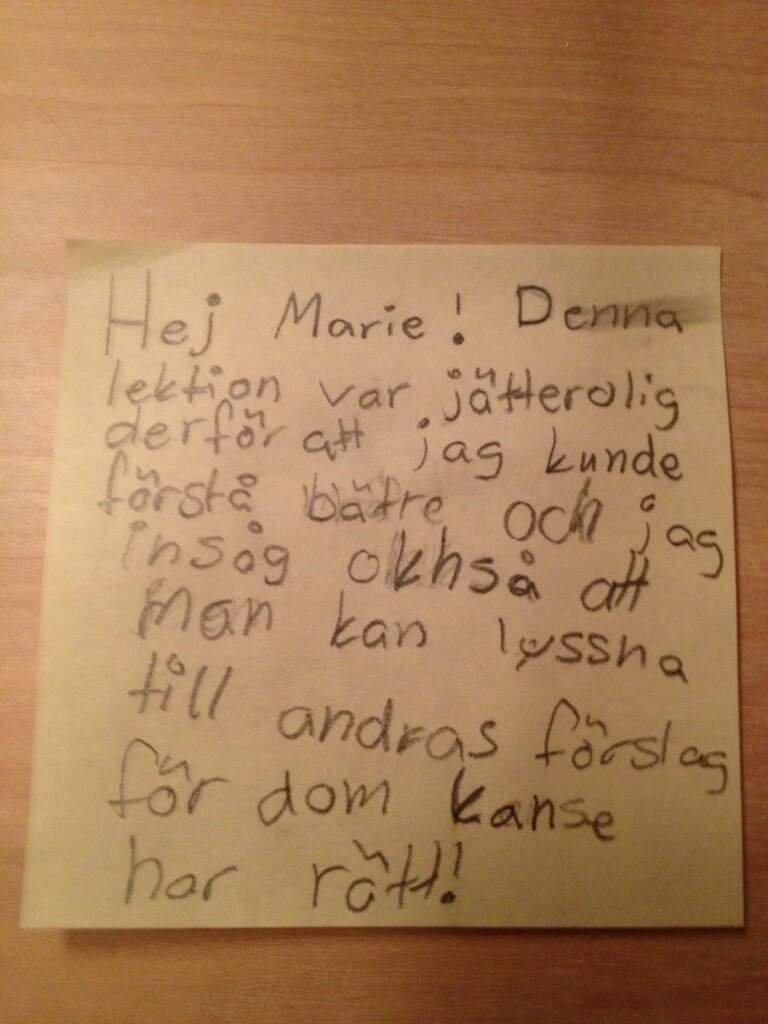 Hej Marie! Denna
lektion var jätterolig
derför att jag kunde
förstå bätre och jag
insåg okhså att
man kan lyssna
till andras förslag
för dom kanse
har rätt!